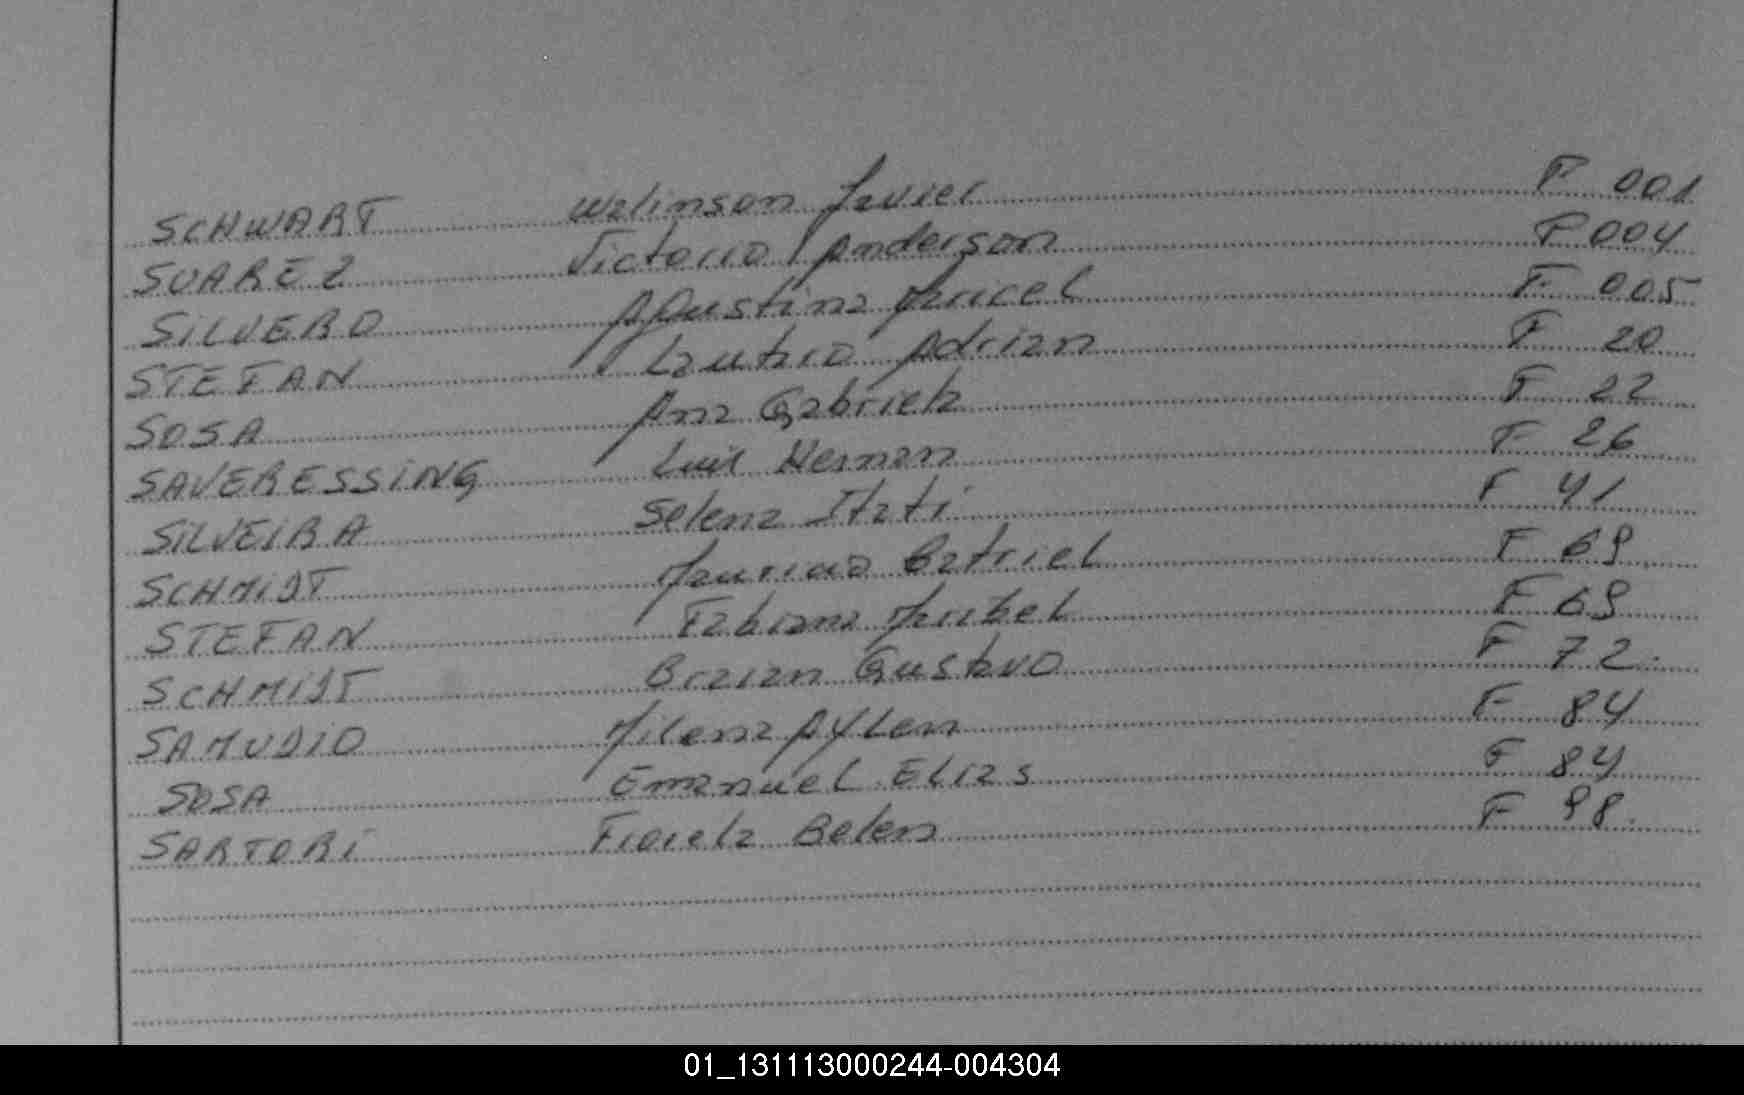 SCHWART Walinson Javier F 001
SUAREZ Victorio Anderson F 004
SILVERO Agustina Maricel F 005
STEFAN Lautaro Adrian F 20
SOSA Ana Gabriela F 22
SAVERESSING Luis Hernan F 26
SILVEIRA Selena Itati F 41
SCHMIDT Gabriel F 69
STEFAN Fabiana Maribel F 69
SCHMIDT Braian Gustavo F 72.
SAMUDIO Milena Aylen F 84
SOSA Emanuel Elias F 84
SARTORI Fiorela Belen F 98.
01_131113000244-004304